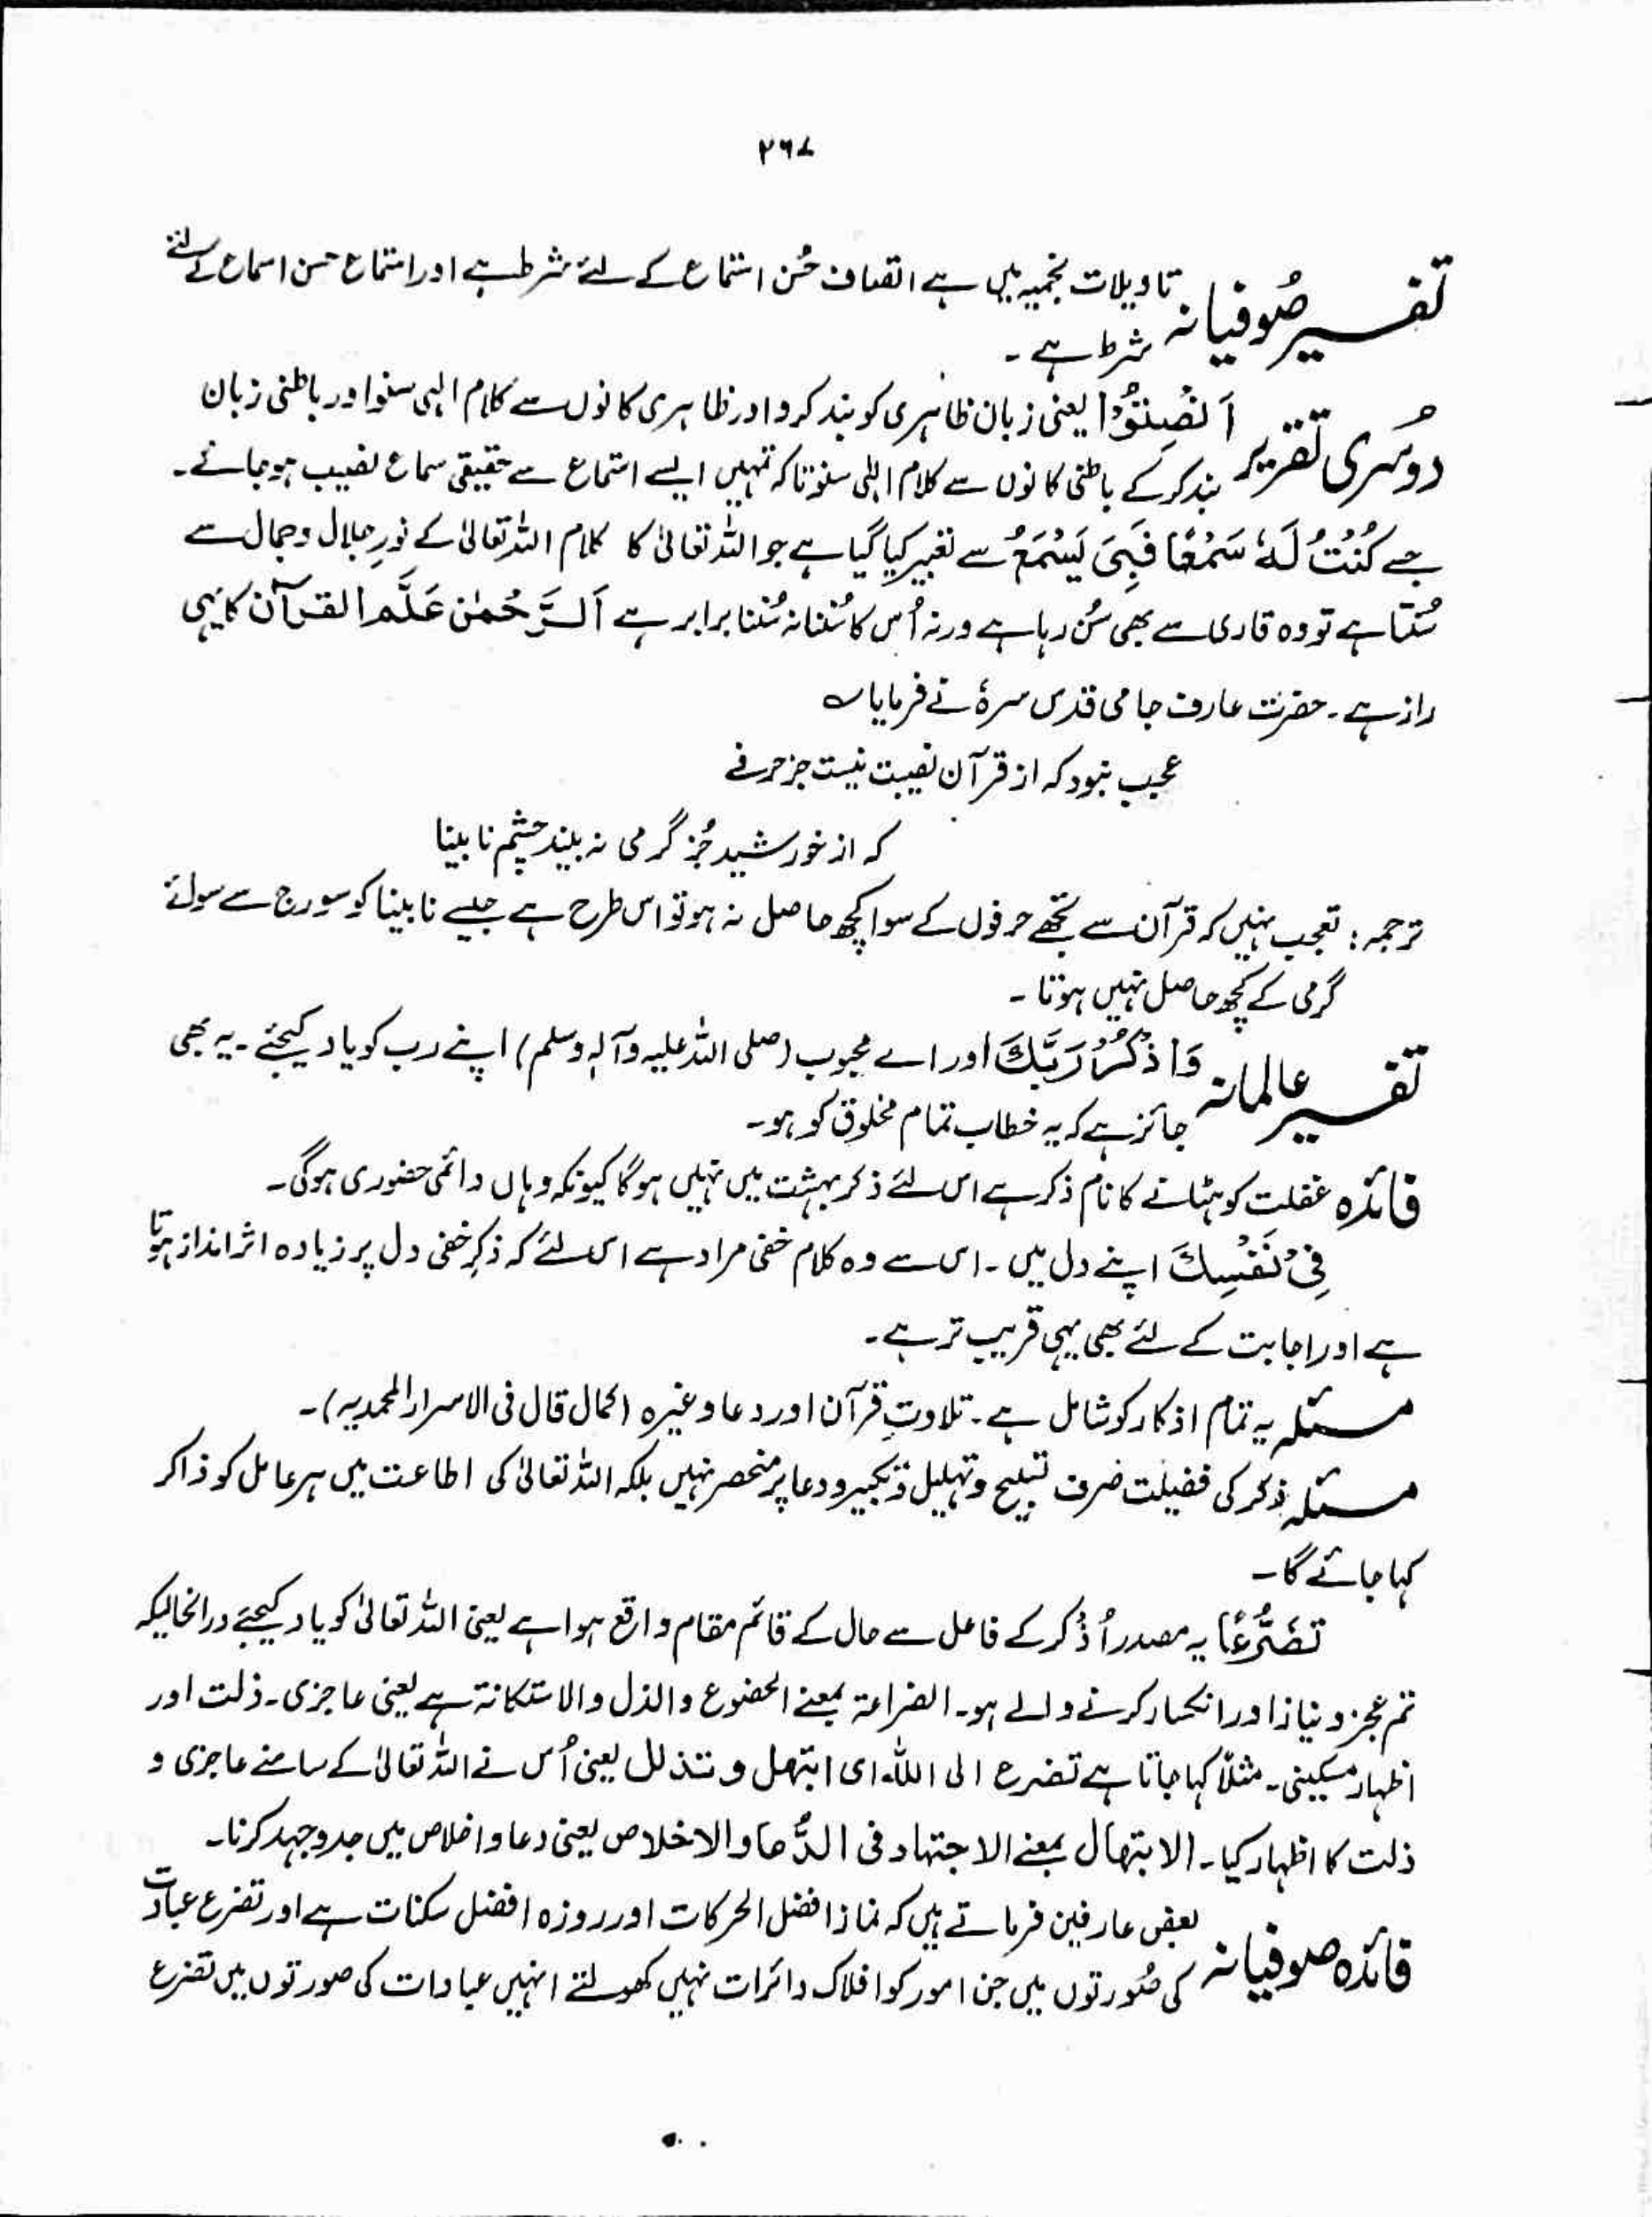 ۲۶۷
تفسیر صُوفیانہ تاویلات نجمیہ میں ہے انصاف حُسن استماع کے لئے شرط ہے اور استماع حسن اسماع کے لئے
شرط ہے ۔
دوُسری تقریر اَنْصِتُوْا یعنی زبان ظاہری کو بند کرو اور ظاہری کانوں سے کلام الٰہی سنو اور باطنی زبان
بند کر کے باطنی کانوں سے کلام الٰہی سنو تاکہ تمہیں ایسے استماع سے حقیقی سماع نصیب ہو جائے ۔
جسے کُنْتُ لَہٗ سَمْعًا فَبِیْ یَسْمَعُ سے تعبیر کیا گیا ہے جو اللہ تعالیٰ کا کلام اللہ تعالیٰ کے نورِ جلال و جمال سے
سُنتا ہے تو وہ قاری سے بھی سُن رہا ہے ورنہ اُس کا سُننا نہ سُننا برابر ہے اَلرَّحْمٰن عَلَّمَ القرآن کا یہی
راز ہے ۔ حضرت عارف جامی قدس سرہٗ نے فرمایا ؎
عجب نبود کہ از قرآن نصیبت نیست جز حرفے
کہ از خورشید جُز گرمی نہ بیند چشم نابینا
ترجمہ : تعجب نہیں کہ قرآن سے تجھے حرفوں کے سوا کچھ حاصل نہ ہو تو اس طرح ہے جیسے نابینا کو سورج سے سوائے
گرمی کے کچھ حاصل نہیں ہوتا ۔
تفسیر عالمانہ وَاذْکُرْ رَّبَّکَ اور اے محبوب (صلی اللہ علیہ وآلہ وسلم) اپنے رب کو یاد کیجئے ۔ یہ بھی
جائز ہے کہ یہ خطاب تمام مخلوق کو ہو ۔
فائدہ غفلت کو ہٹانے کا نام ذکر ہے اس لئے ذکر بہشت میں نہیں ہوگا کیونکہ وہاں دائمی حضوری ہوگی ۔
فِیْ نَفْسِکَ اپنے دل میں ۔ اس سے وہ کلام خفی مراد ہے اس لئے کہ ذکرِ خفی دل پر زیادہ اثر انداز ہوتا
ہے اور اجابت کے لئے بھی یہی قریب تر ہے ۔
مسئلہ یہ تمام اذکار کو شامل ہے ۔ تلاوتِ قرآن اور دعا وغیرہ (کمال قال فی الاسرار المحمدیہ) ۔
مسئلہ ذکر کی فضیلت صرف تسبیح و تہلیل و تکبیر و دعا پر منحصر نہیں بلکہ اللہ تعالیٰ کی اطاعت میں ہر عامل کو ذاکر
کہا جائے گا ۔
تَضَرُّعًا یہ مصدر اُذْکر کے فاعل سے حال کے قائم مقام واقع ہوا ہے یعنی اللہ تعالیٰ کو یاد کیجئے درانحالیکہ
تم عجز و نیاز اور انکسار کرنے والے ہو ۔ الضراعۃ بمعنے الخضوع والذل والاستکانۃ ہے یعنی عاجزی ۔ ذلت اور
اظہار مسکینی ۔ مثلاً کہا جاتا ہے تضرع الی اللّٰہ ای ابتھل و تذلل یعنی اُس نے اللہ تعالیٰ کے سامنے عاجزی و
ذلت کا اظہار کیا ۔ الابتھال بمعنے الاجتہاد فی الدُّعا والاخلاص یعنی دعا و اخلاص میں جدوجہد کرنا ۔
فائدہ صوفیانہ بعض عارفین فرماتے ہیں کہ نماز افضل الحرکات اور روزہ افضل سکنات ہے اور تضرع عبادات
کی صُورتوں میں جن امور کو افلاک دائرات نہیں کھولتے انہیں عبادات کی صورتوں میں تضرع